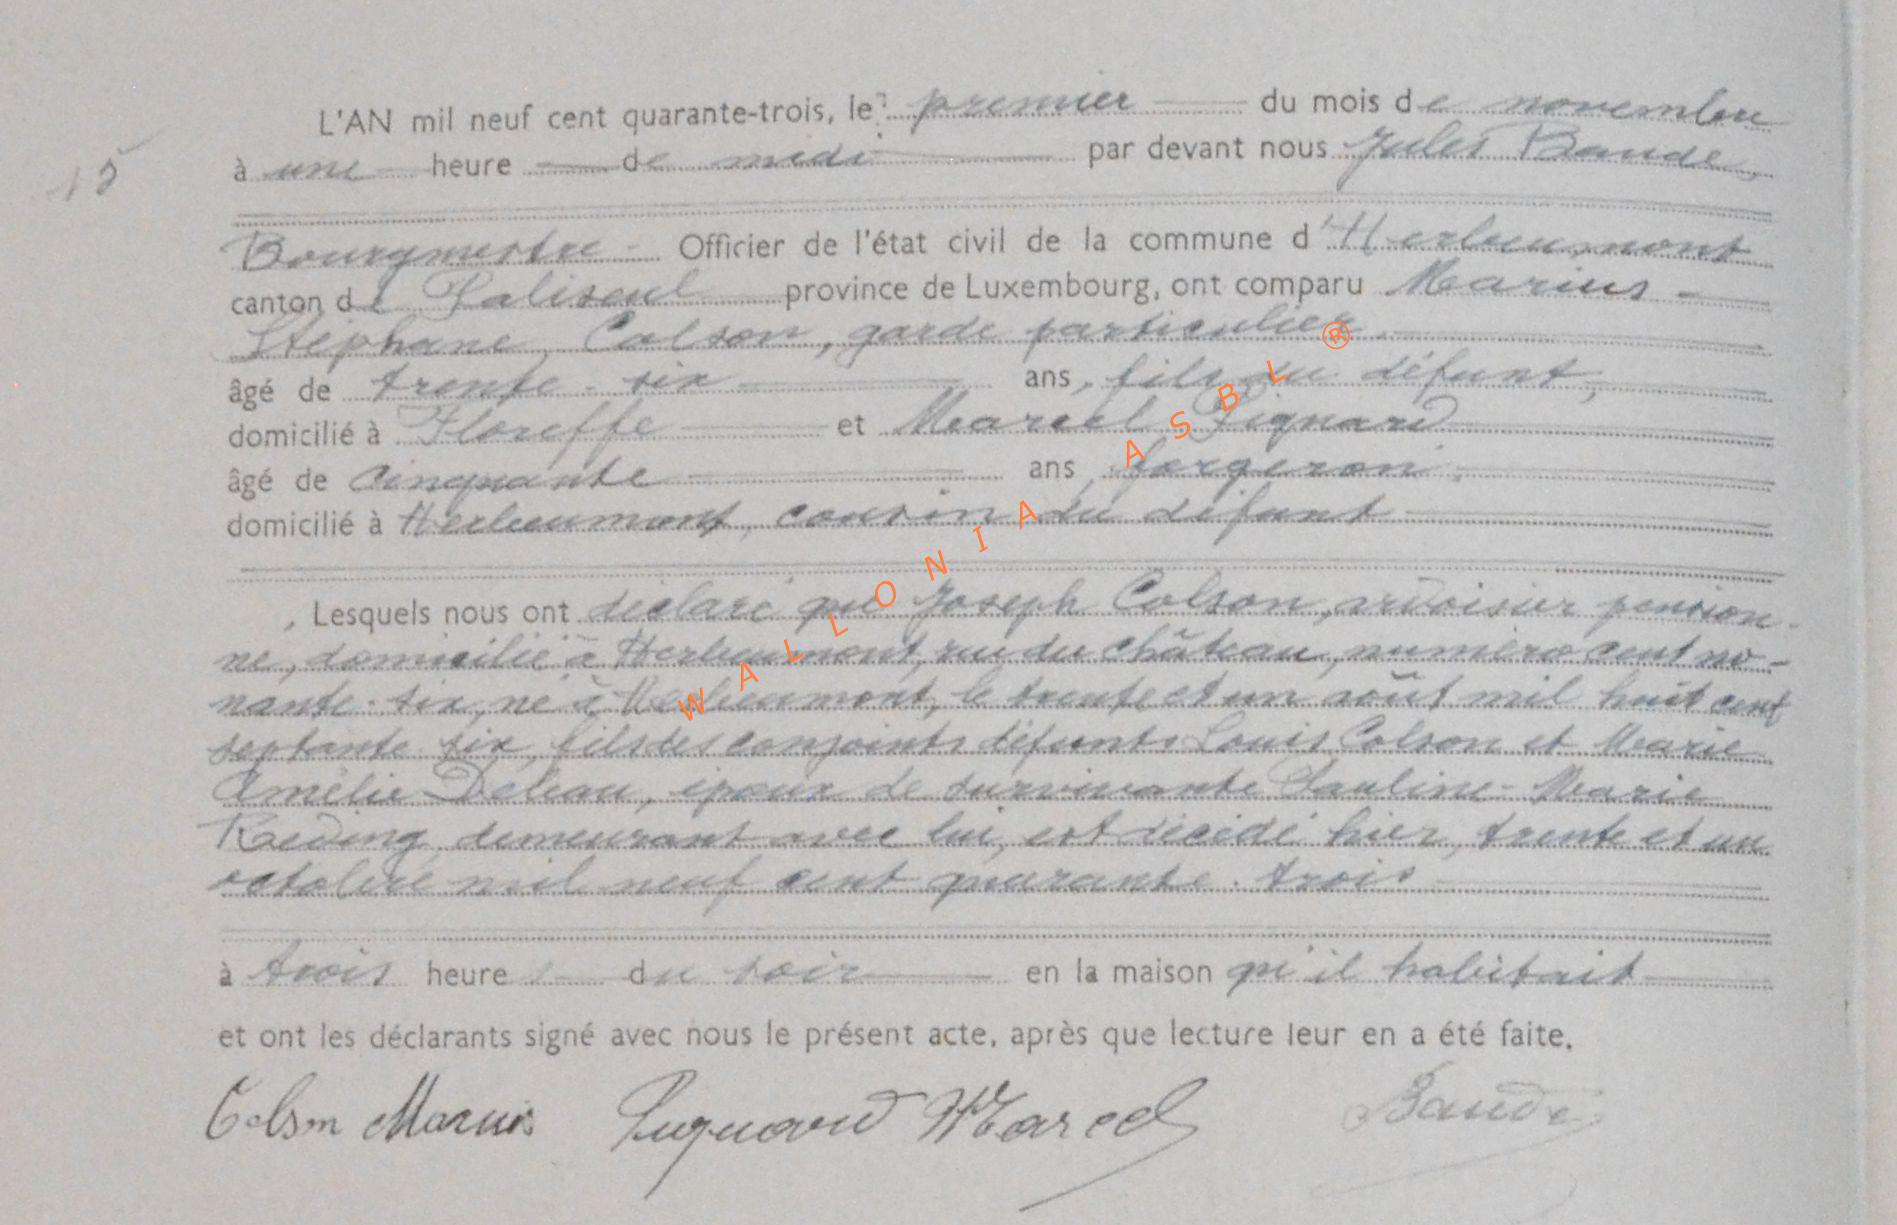 L'AN mil neuf cent quarante-trois, le premier du mois de novembre
15
à une heure de midi par devant nous Jules Baude,
Bourgmestre Officier de l'état civil de la commune d'Herbeumont
canton de Paliseul province de Luxembourg, ont comparu Marius
Stéphane, Colson, garde particulier
âgé de trente-six ans, fils du défunt,
domicilié à Floreffe et Marcel Pignard
âgé de cinquante ans, forgeron,
domicilié à Herbeumont, cousin du défunt
Lesquels nous ont déclaré que Joseph Colson, ardoisier pension-
né, domicilié à Herbeumont, rue du château, numéro cent no-
nante-six, né à Herbeumont, le trente et un août mil huit cent
septante six, fils des conjoints défunts Louis Colson et Marie
Amélie Deleau, époux de survivante Pauline-Marie
Reding demeurant avec lui, est décédé hier, trente et un
octobre mil neuf cent quarante-trois
à trois heures du soir en la maison qu'il habitait
et ont les déclarants signé avec nous le présent acte, après que lecture leur en a été faite.
Colson Marius Pignard Marcel Baude
WALLONIA ASBL ®